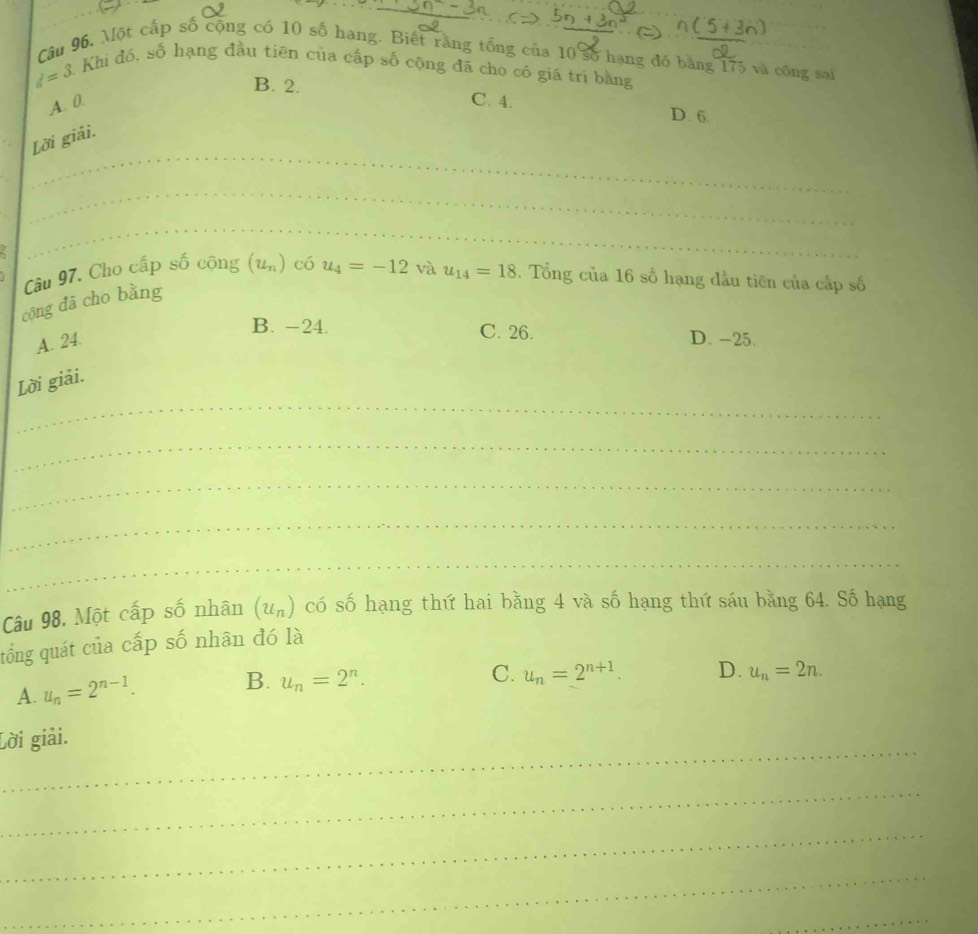 - 3n <=> 5n + 3n² / 2 <=> n(5 + 3n) / 2
Câu 96. Một cấp số cộng có 10 số hạng. Biết rằng tổng của 10 số hạng đó bằng 175 và công sai
d = 3. Khi đó, số hạng đầu tiên của cấp số cộng đã cho có giá trị bằng
A. 0. B. 2. C. 4. D. 6.
Lời giải.
Câu 97. Cho cấp số cộng (uₙ) có u₄ = −12 và u₁₄ = 18. Tổng của 16 số hạng đầu tiên của cấp số
cộng đã cho bằng
A. 24. B. −24. C. 26. D. −25.
Lời giải.
Câu 98. Một cấp số nhân (uₙ) có số hạng thứ hai bằng 4 và số hạng thứ sáu bằng 64. Số hạng
tổng quát của cấp số nhân đó là
A. uₙ = 2ⁿ⁻¹. B. uₙ = 2ⁿ. C. uₙ = 2ⁿ⁺¹. D. uₙ = 2n.
Lời giải.